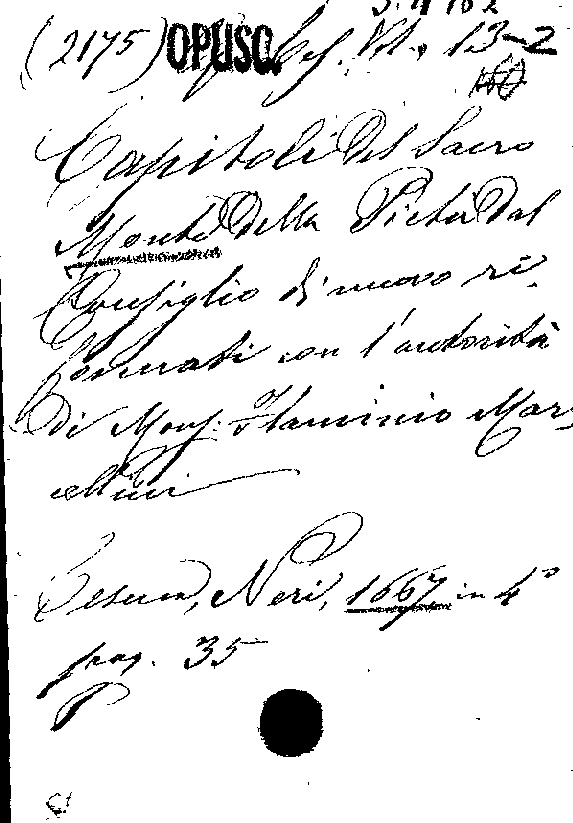 (2175) OPUSC. Ces. Vol. 13-2
Capitoli del Sacro
Monte della Pietà dal
Consiglio di nuovo ri-
formati con l'autorità
di Mons. Flaminio Mar-
cellini
Cesena, Neri, 1667 in 4°
pag. 35